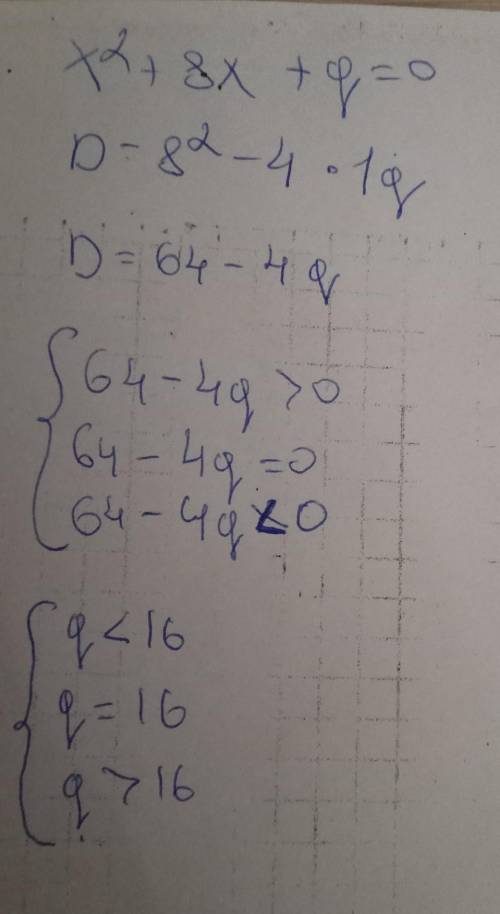 x² + 8x + q = 0
D = 8² - 4 · 1q
D = 64 - 4q
64 - 4q > 0
64 - 4q = 0
64 - 4q < 0
q < 16
q = 16
q > 16